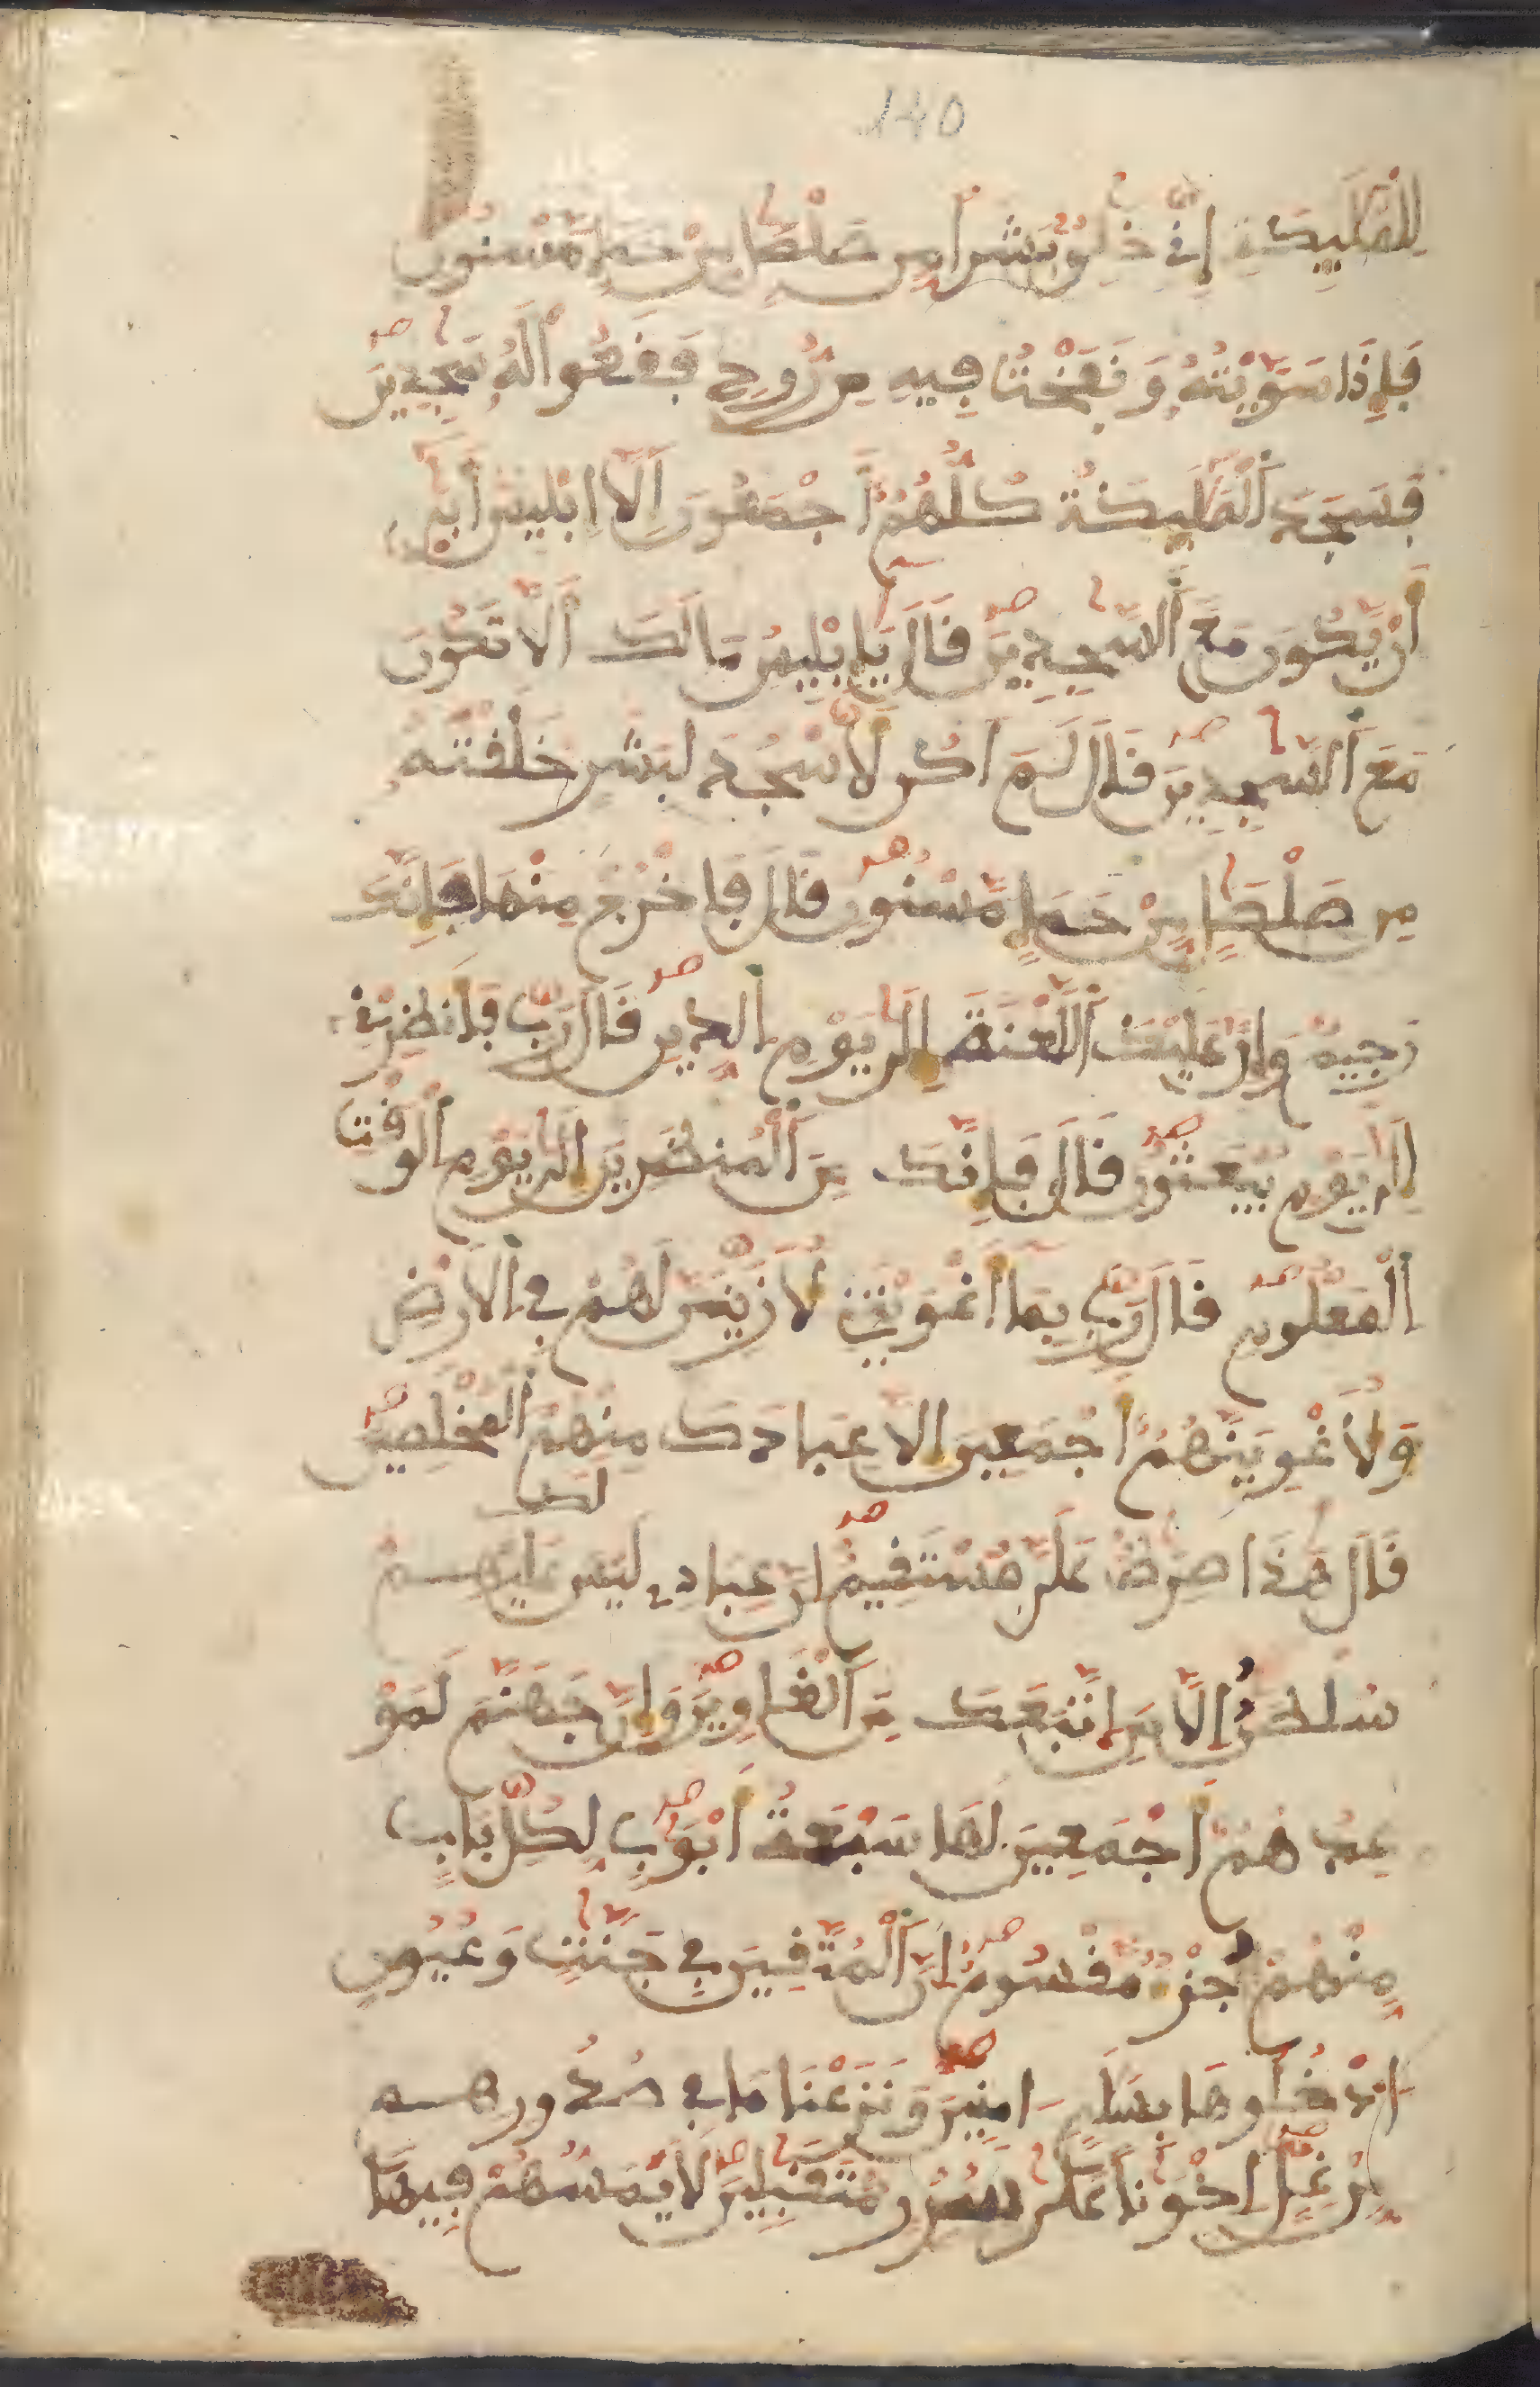 140
لِلْمَلَٰٓئِكَةِ إِنِّے خَٰلِقُۢ بَشَراٗ مِّن صَلْصَٰلٖ مِّنْ حَمَإٖ مَّسْنُونٖ
فَإِذَا سَوَّيْتُهُۥ وَنَفَخْتُ فِيهِ مِن رُّوحِے فَقَعُواْ لَهُۥ سَٰجِدِينَ
فَسَجَدَ اَ۬لْمَلَٰٓئِكَةُ كُلُّهُمُۥٓ أَجْمَعُونَ إِلَّآ إِبْلِيسَ أَب۪ىٰٓ
أَنْ يَّكُونَ مَعَ اَ۬لسَّٰجِدِينَ قَالَ يَٰٓإِبْلِيسُ مَا لَكَ أَلَّا تَكُونَ
مَعَ اَ۬لسَّٰجِدِينَ قَالَ لَمَ اَكُن لِّأَسْجُدَ لِبَشَرٍ خَلَقْتَهُۥ
مِن صَلْصَٰلٖ مِّنْ حَمَإٖ مَّسْنُونٖ قَالَ فَاخْرُجْ مِنْهَا فَإِنَّكَ
رَجِيمٞ وَإِنَّ عَلَيْكَ اَ۬للَّعْنَةَ إِلَىٰ يَوْمِ اِ۬لدِّينِ قَالَ رَبِّ فَأَنظِرْنِےٓ
إِلَىٰ يَوْمِ يُبْعَثُونَ قَالَ فَإِنَّكَ مِنَ اَ۬لْمُنظَرِينَ إِلَىٰ يَوْمِ اِ۬لْوَقْتِ
اِ۬لْمَعْلُومِ قَالَ رَبِّ بِمَآ أَغْوَيْتَنِے لَأُزَيِّنَنَّ لَهُمْ فِے اِ۬لْأَرْضِ
وَلَأُغْوِيَنَّهُمُۥٓ أَجْمَعِينَ إِلَّا عِبَادَكَ مِنْهُمُ اُ۬لْمُخْلَصِينَ
لك
قَالَ هَٰذَا صِرَٰطٌ عَلَيَّ مُسْتَقِيمٌ اِنَّ عِبَادِے لَيْسَ عَلَيْهِمْ
سُلْطَٰنٌ اِلَّا مَنِ اِ۪تَّبَعَكَ مِنَ اَ۬لْغَاوِينَ وَإِنَّ جَهَنَّمَ لَمَوْ
عِدُهُمُۥٓ أَجْمَعِينَ لَهَا سَبْعَةُ أَبْوَٰبٖ لِّكُلِّ بَابٖ
مِّنْهُمْ جُزْءٞ مَّقْسُومٌ اِنَّ اَ۬لْمُتَّقِينَ فِے جَنَّٰتٖ وَعُيُونٍ
اُ۟دْخُلُوهَا بِسَلَٰمٍ اٰمِنِينَ وَنَزَعْنَا مَا فِے صُدُورِهِم
مِّنْ غِلٍّ اِخْوَٰناً عَلَىٰ سُرُرٖ مُّتَقَٰبِلِينَ لَا يَمَسُّهُمْ فِيهَا